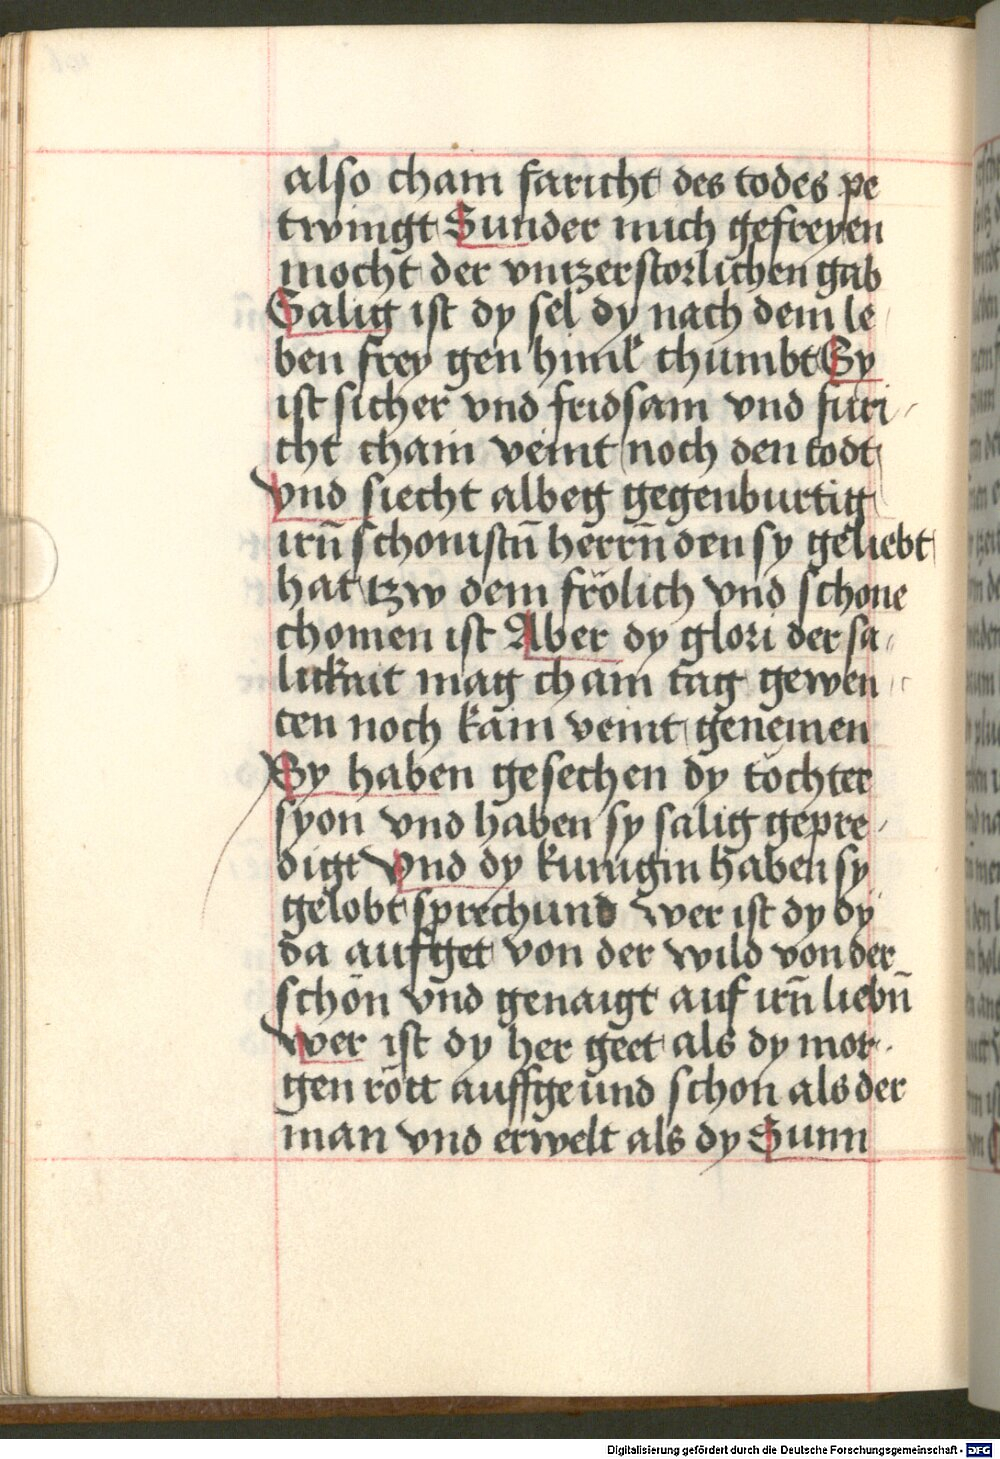 also cham faricht des todes pe
twingt Sunder mich gefreyen
mocht der vntzerstorlichen gab
Salig ist dy sel dy nach dem le
ben frey gen himl chumbt Sy
ist sicher vnd fridsam vnd furi
cht cham veint noch den todt
Vnd siecht albeg gegenburtig
irn̄ schonistn̄ herrn̄ den sy geliebt
hat tzw dem frölich vnd schone
chomen ist Aber dy glori der sa
lickait mag cham tag gewen
ten noch kam veint genemen
Sy haben gesechen dy töchter
syon vnd haben sy salig gepre
digt Vnd dy kunigin haben sy
gelobt sprechund wer ist dy dy
da aufget von der wild von der
schön vnd genaigt auf irn̄ liebn̄
Wer ist dy her geet als dy mor
gen rött auffgeund schon als der
man vnd erwelt als dy Sunn
Digitalisierung gefördert durch die Deutsche Forschungsgemeinschaft - DFG